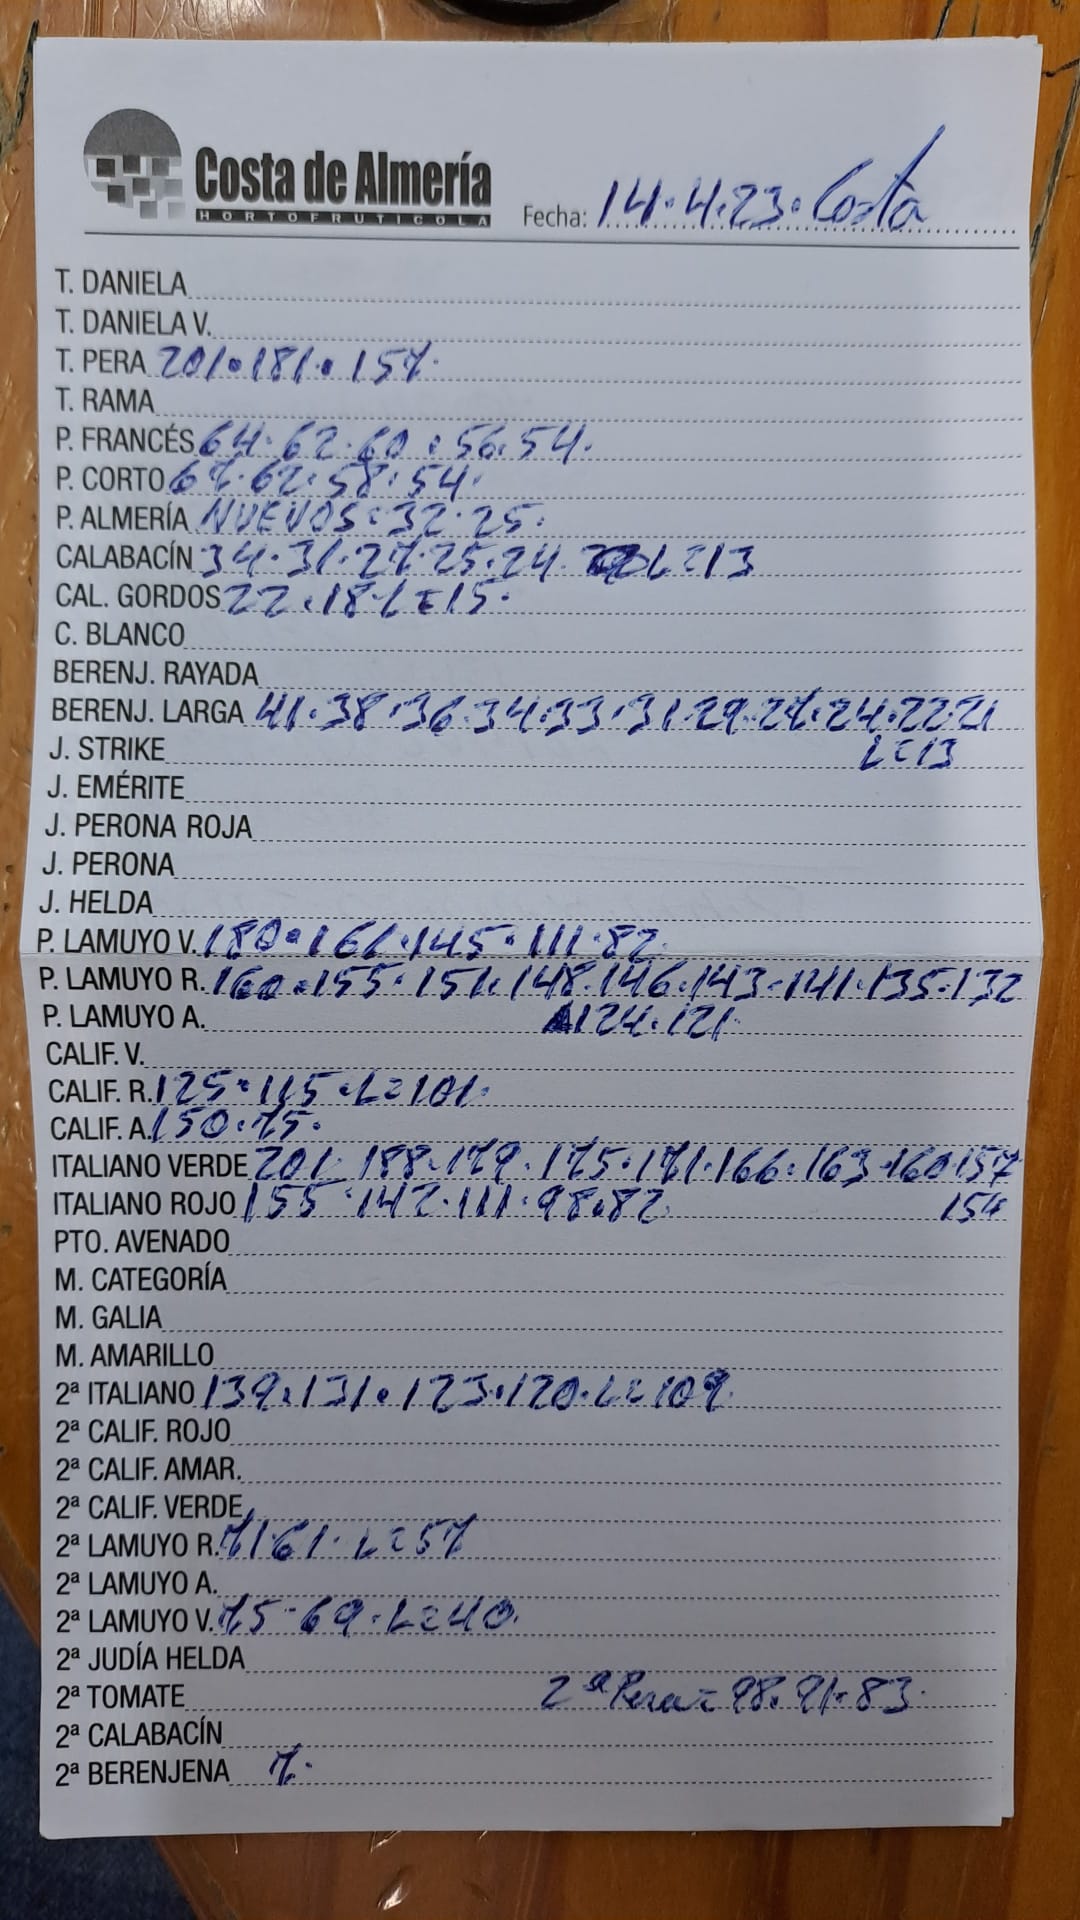 Costa de Almería
HORTOFRUTICOLA
Fecha: 14.4.23. Costa
T. DANIELA
T. DANIELA V.
T. PERA 201.181.157.
T. RAMA
P. FRANCÉS 64.62.60.56.54.
P. CORTO 67.62.58.54.
P. ALMERÍA NUEVOS=32.25.
CALABACÍN 34.31.27.25.24. L=13
CAL. GORDOS 22.18.L=15.
C. BLANCO
BERENJ. RAYADA
BERENJ. LARGA 41.38.36.34.33.31.29.27.24.22.21
J. STRIKE L=13
J. EMÉRITE
J. PERONA ROJA
J. PERONA
J. HELDA
P. LAMUYO V. 180.161.145.111.82.
P. LAMUYO R. 160.155.151.148.146.143.141.135.132
P. LAMUYO A. 124.121.
CALIF. V.
CALIF. R. 125.115.L=101.
CALIF. A. 150.75.
ITALIANO VERDE 201.188.179.175.171.166.163.160.157
ITALIANO ROJO 155.142.111.98.82. 154
PTO. AVENADO
M. CATEGORÍA
M. GALIA
M. AMARILLO
2ª ITALIANO 139.131.123.120.L=109.
2ª CALIF. ROJO
2ª CALIF. AMAR.
2ª CALIF. VERDE
2ª LAMUYO R. 71.61.L=57
2ª LAMUYO A.
2ª LAMUYO V. 75.69.L=40.
2ª JUDÍA HELDA
2ª TOMATE 2ª Pera=98.91.83.
2ª CALABACÍN
2ª BERENJENA 7.